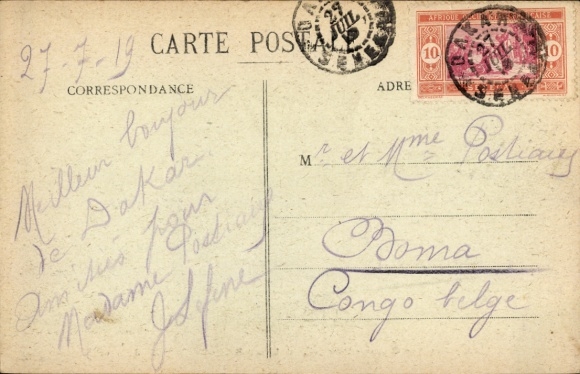 27-7-19
CARTE POSTALE
CORRESPONDANCE
ADRE
Meilleur bonjour
de Dakar
pour
Madame Postiaux
Mr et Mme Postiaux
Boma
Congo belge
DAKAR
27
JUIL
SENEGAL
AFRIQUE OCCIDENTALE FRANÇAISE
10
10
DAKAR
27
JUIL
SENEGAL